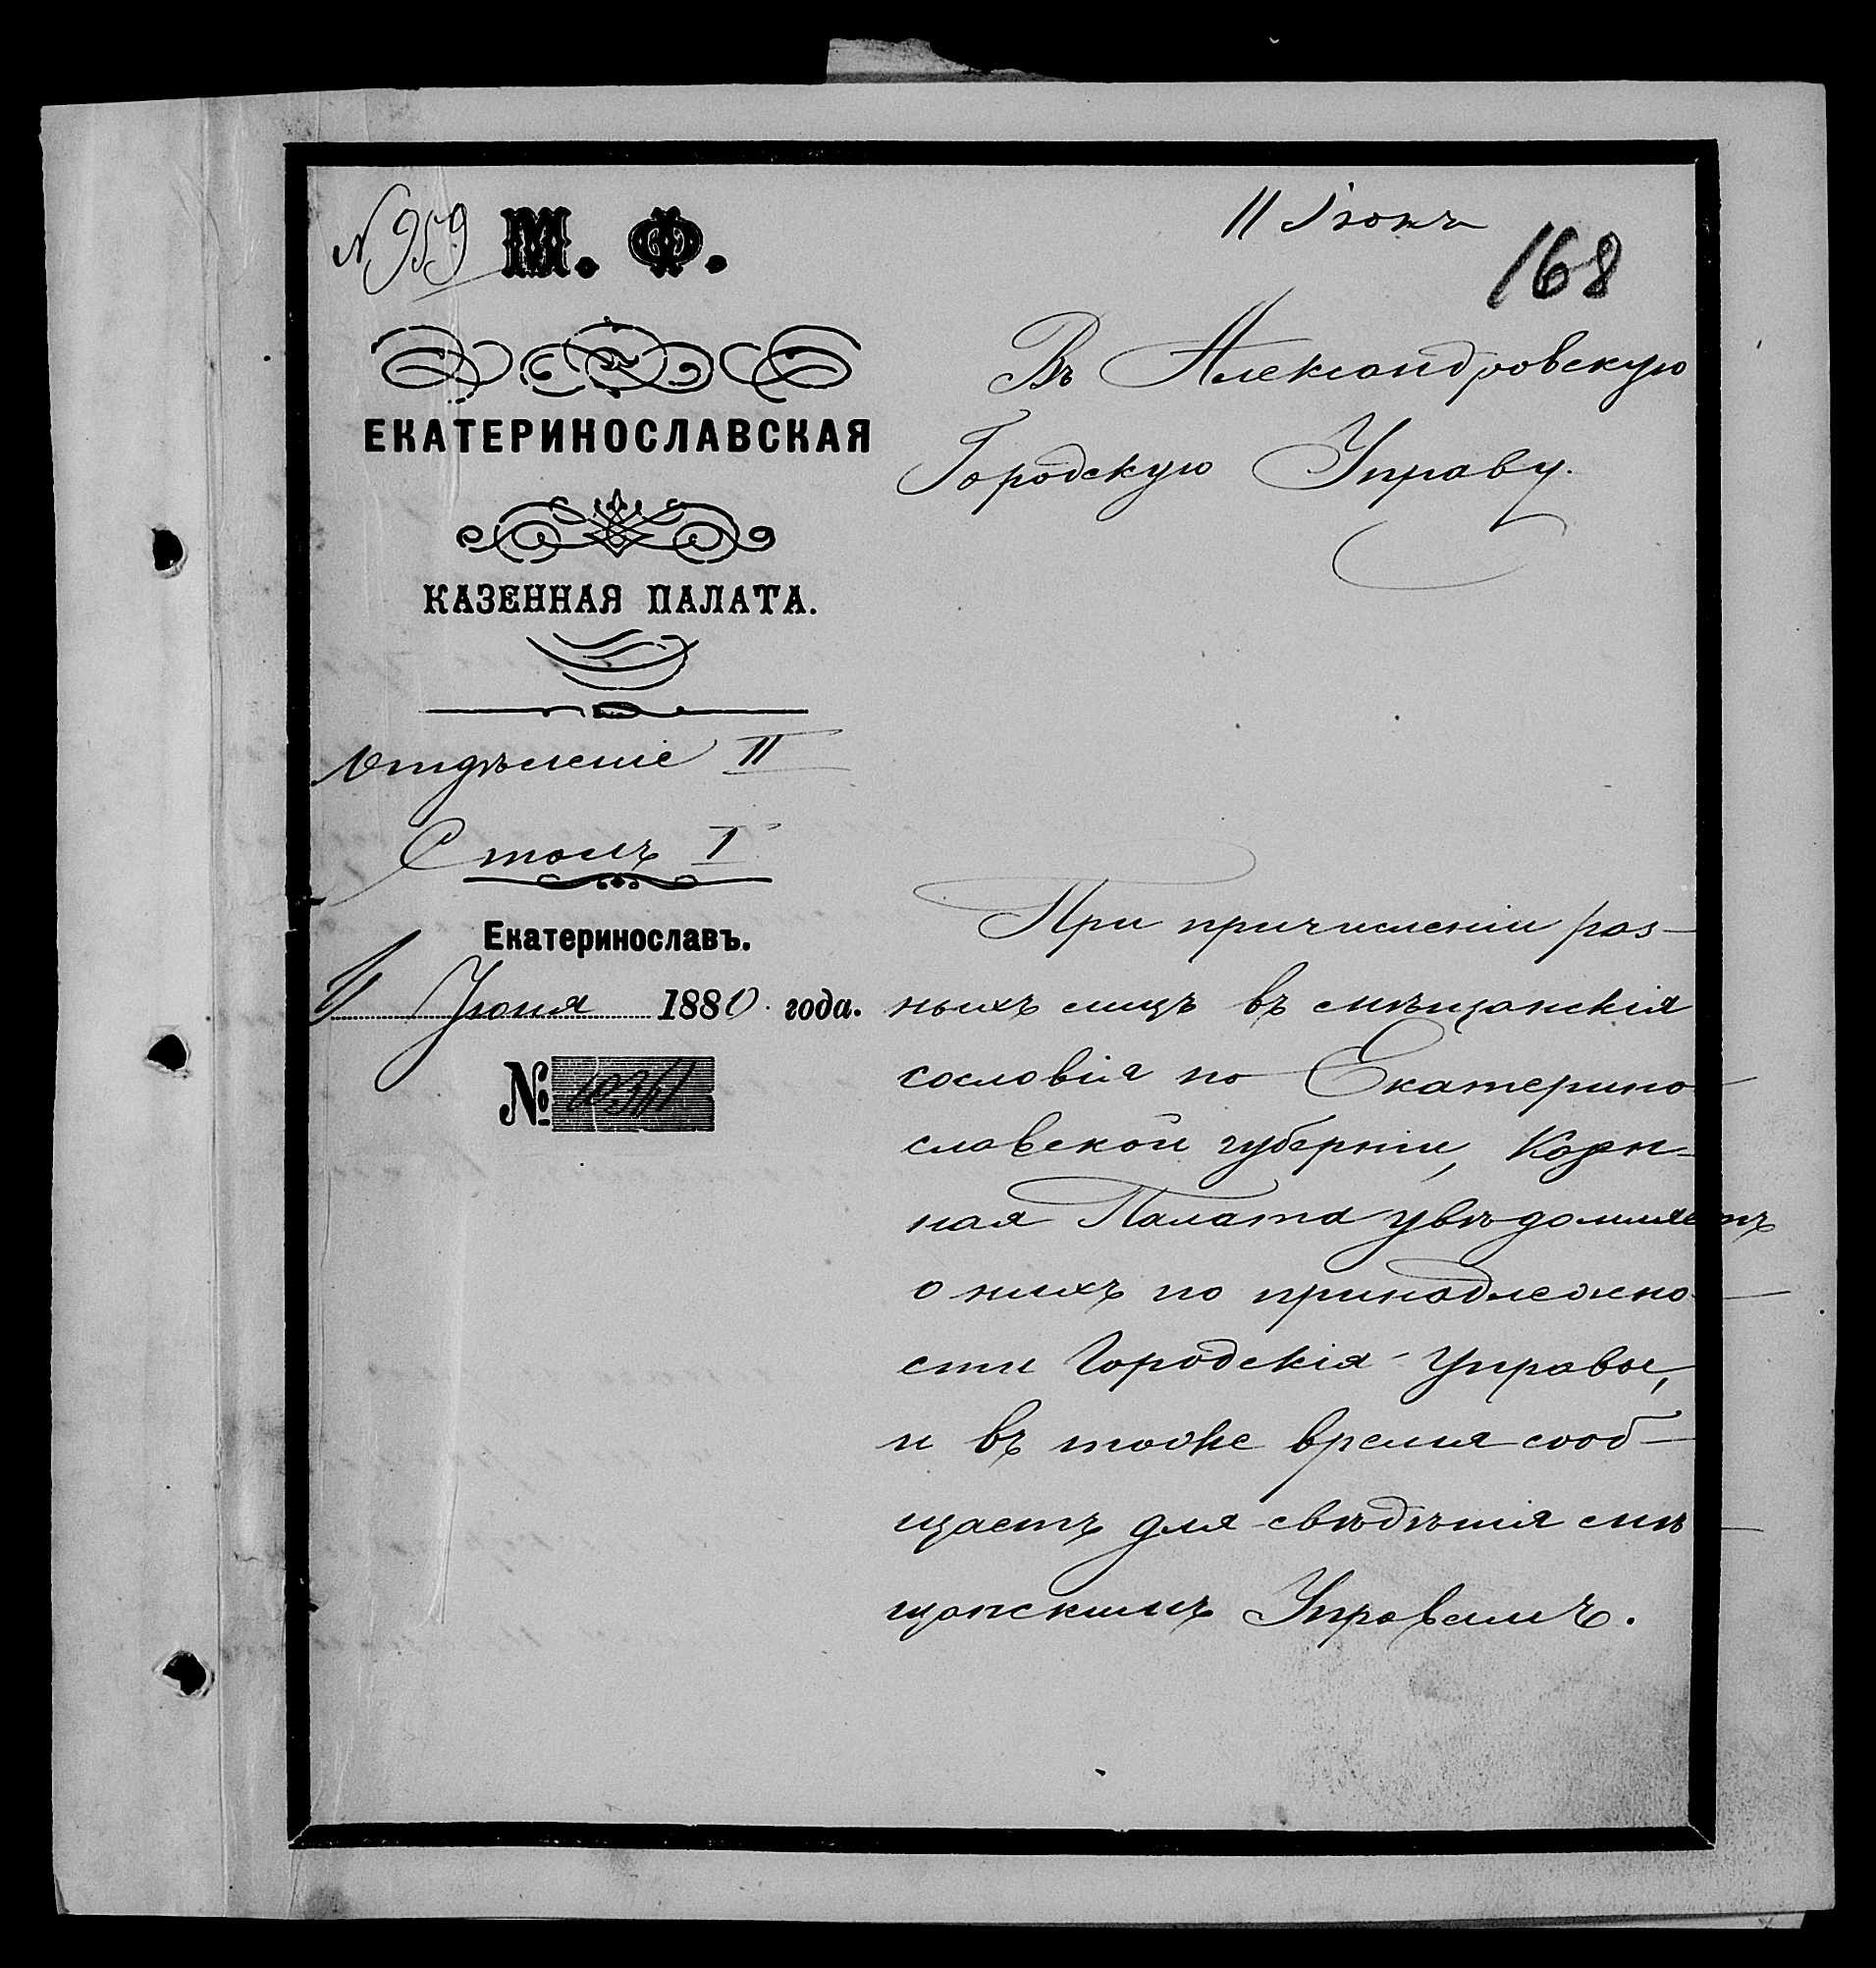 № 959
М. Ф.
ЕКАТЕРИНОСЛАВСКАЯ
КАЗЕННАЯ ПАЛАТА.
Отдѣленіе II
Столъ I
Екатеринославъ.
Іюня 1880 года.
№
11 Іюня
168
Въ Александровскую
Городскую Управу.
При причисленіи раз-
ныхъ лицъ въ мѣщанскія
сословія по Екатерино-
славской губерніи, Казен-
ная Палата увѣдомляетъ
о нихъ по принадлежно-
сти Городскія Управы,
и въ тоже время сооб-
щаетъ для свѣдѣнія мѣ-
щанскимъ Управамъ.